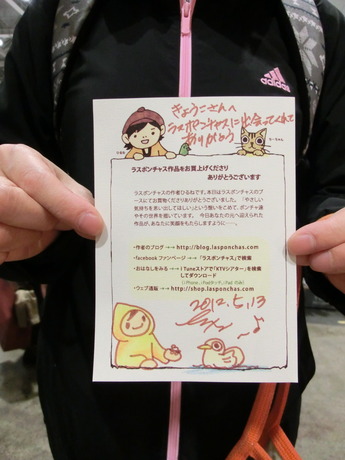 adidas
きょうこさんへ
ラスポンチャスに出会ってくれて
ありがとう
ラスポンチャス作品をお買上げくださり
ありがとうございます
ラスポンチャスの作者ひるねです。本日はラスポンチャスのブ
ースにてお買物くださりありがとうございました。「やさしい
気持ちを思い出してほしい」という想いをこめて、ポンチャ達
やその世界を描いています。 今日あなたの元へ迎えられた
作品が、あなたに笑顔をもたらしますように……。
・作者のブログ→http://blog.lasponchas.com
・facebook ファンページ→「ラスポンチャス」で検索
・おはなしをみる→iTuneストアで「KTVシアター」を検索
してダウンロード
(iPhone、iPadタッチ、iPad のみ)
・ウェブ通販→http://shop.lasponchas.com
2012.5.13